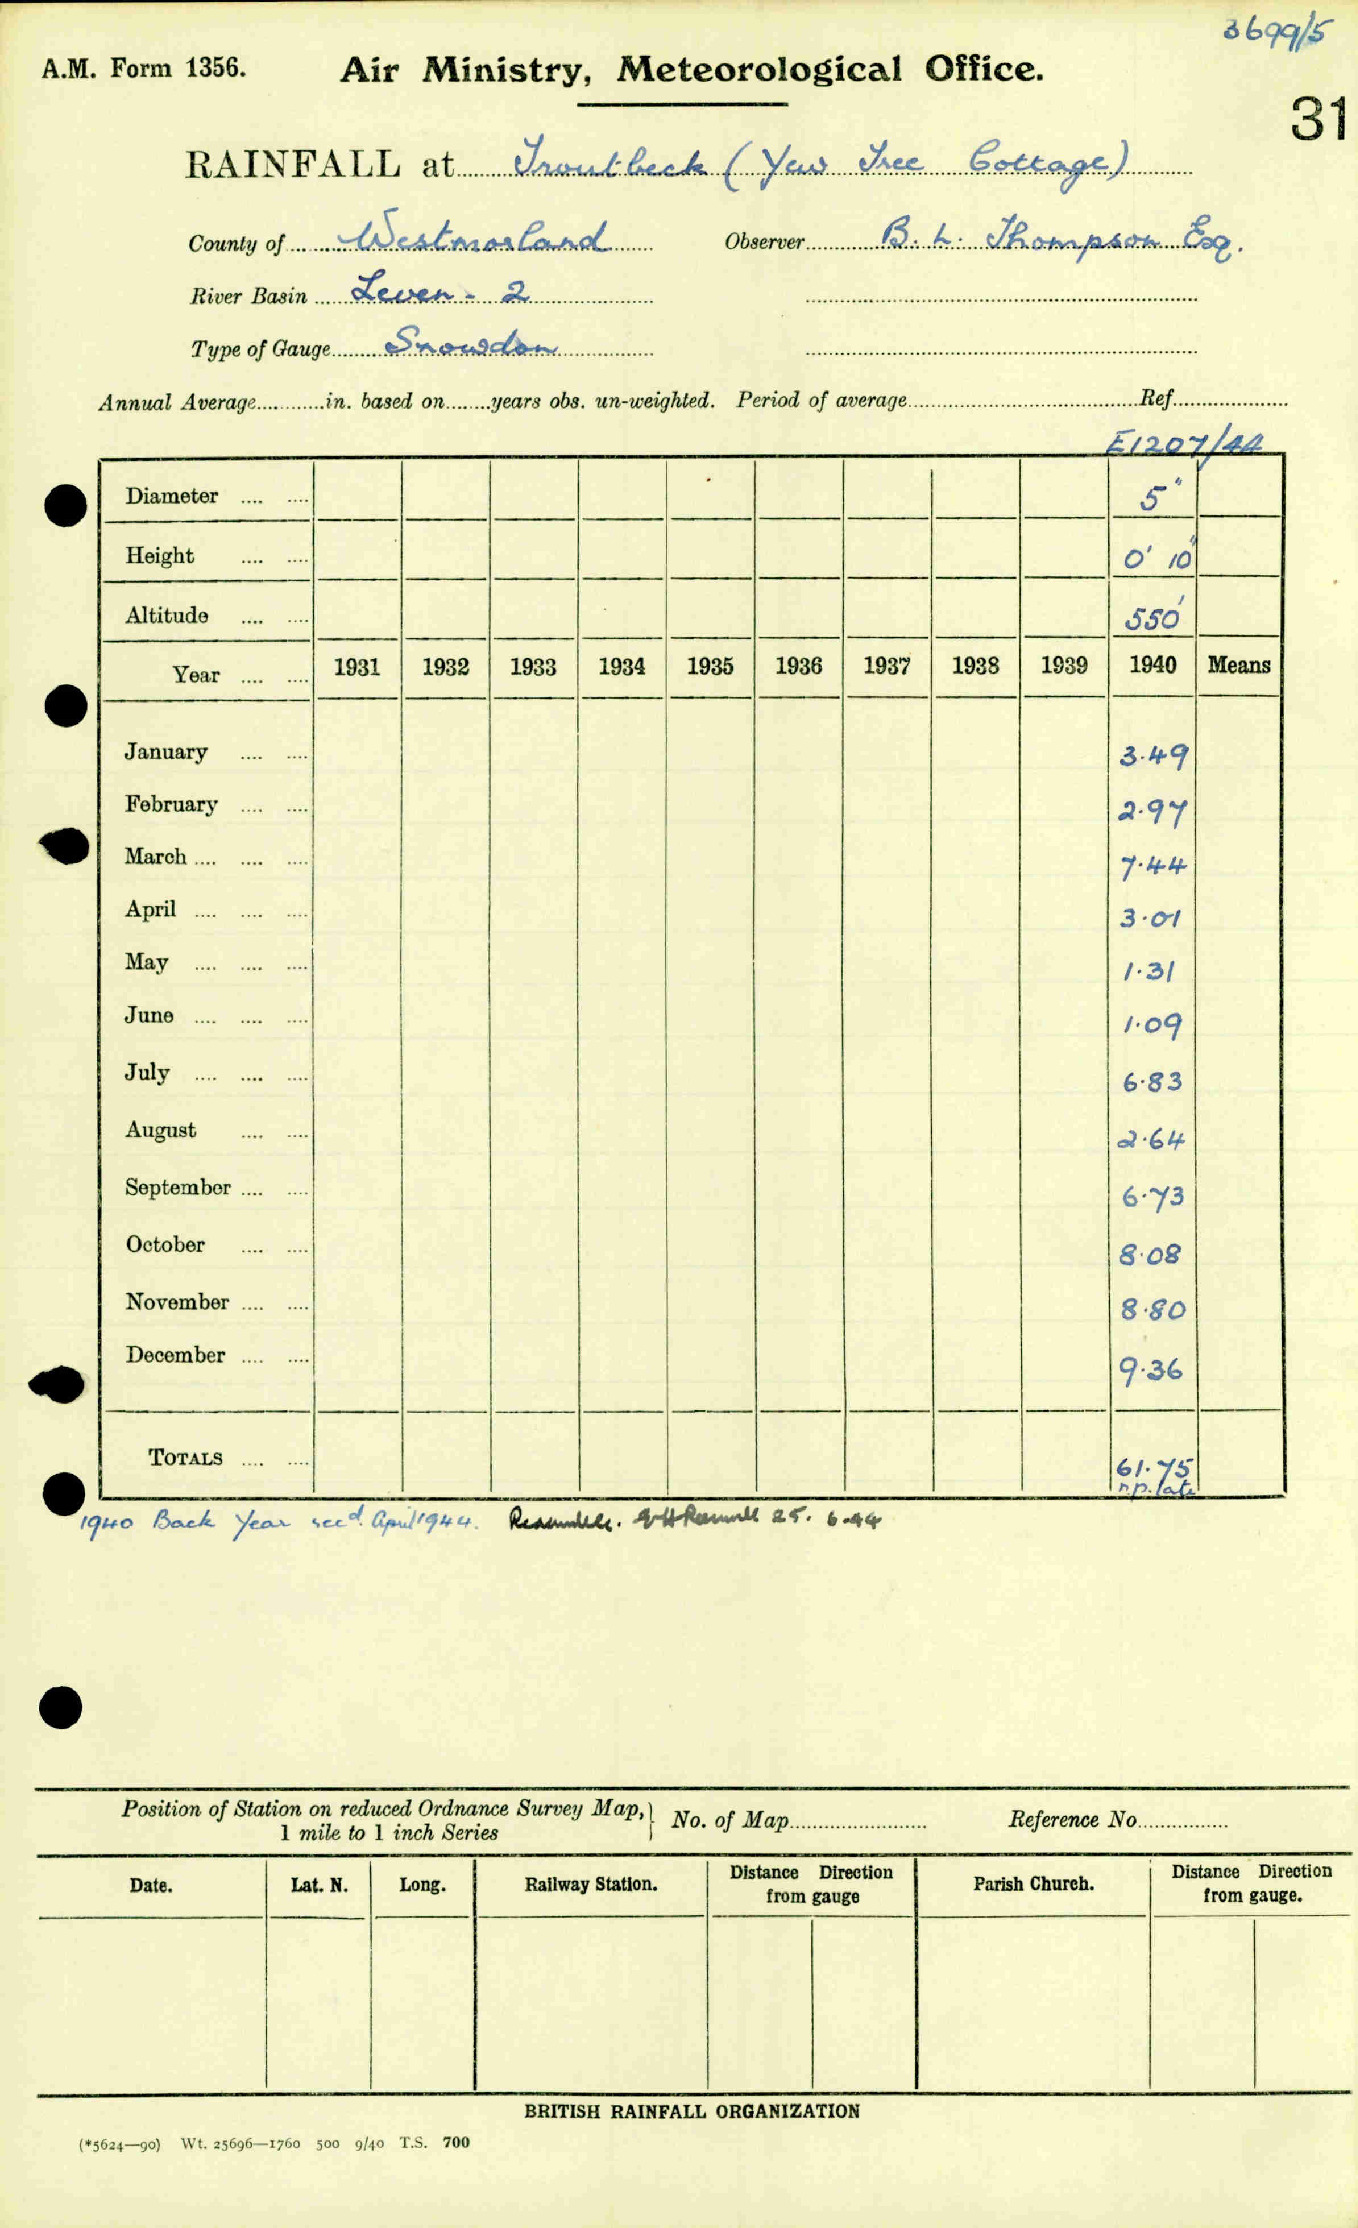 3699/5
A.M. Form 1356. Air Ministry, Meteorological Office.
31
RAINFALL at Troutbeck (Yew Tree Cottage)
County of Westmorland Observer B. L. Thompson Esq.
River Basin Leven - 2
Type of Gauge Snowdon
Annual Average in. based on years obs. un-weighted. Period of average Ref
E1207/44
Diameter 5"
Height 0' 10"
Altitude 550'
Year 1931 1932 1933 1934 1935 1936 1937 1938 1939 1940 Means
January 3.49
February 2.97
March 7.44
April 3.01
May 1.31
June 1.09
July 6.83
August 2.64
September 6.73
October 8.08
November 8.80
December 9.36
TOTALS 61.75
n.p. late
1940 Back Year recd. April 1944. 25. 6.44
Position of Station on reduced Ordnance Survey Map, } No. of Map Reference No.
1 mile to 1 inch Series
Date. Lat. N. Long. Railway Station. Distance Direction from gauge Parish Church. Distance Direction from gauge.
BRITISH RAINFALL ORGANIZATION
(*5624—90) Wt. 25696—1760 500 9/40 T.S. 700